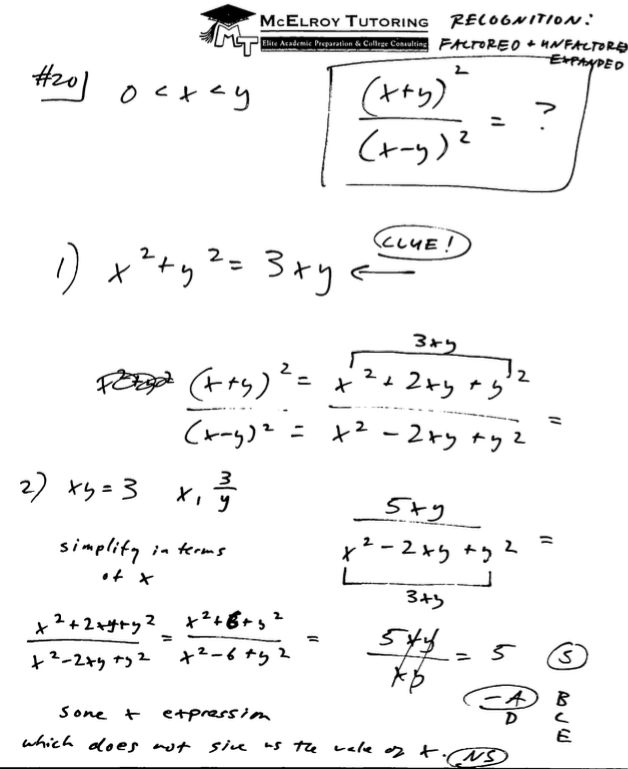 McELROY TUTORING
Elite Academic Preparation & College Consulting
MT
RECOGNITION:
FACTORED + UNFACTORED
EXPANDED
#20) 0 < x < y
(x+y)² / (x-y)² = ?
1) x² + y² = 3xy ← CLUE!
3xy
(x+y)² / (x-y)² = x² + 2xy + y² / x² - 2xy + y² =
5xy / x² - 2xy + y² =
3xy
5xy / xy = 5 (S)
2) xy = 3 x, 3/y
simplify in terms
of x
x²+2xy+y² / x²-2xy+y² = x²+6+y² / x²-6+y² =
some x expression
which does not give us the value of x. (NS)
-A B
D C
E